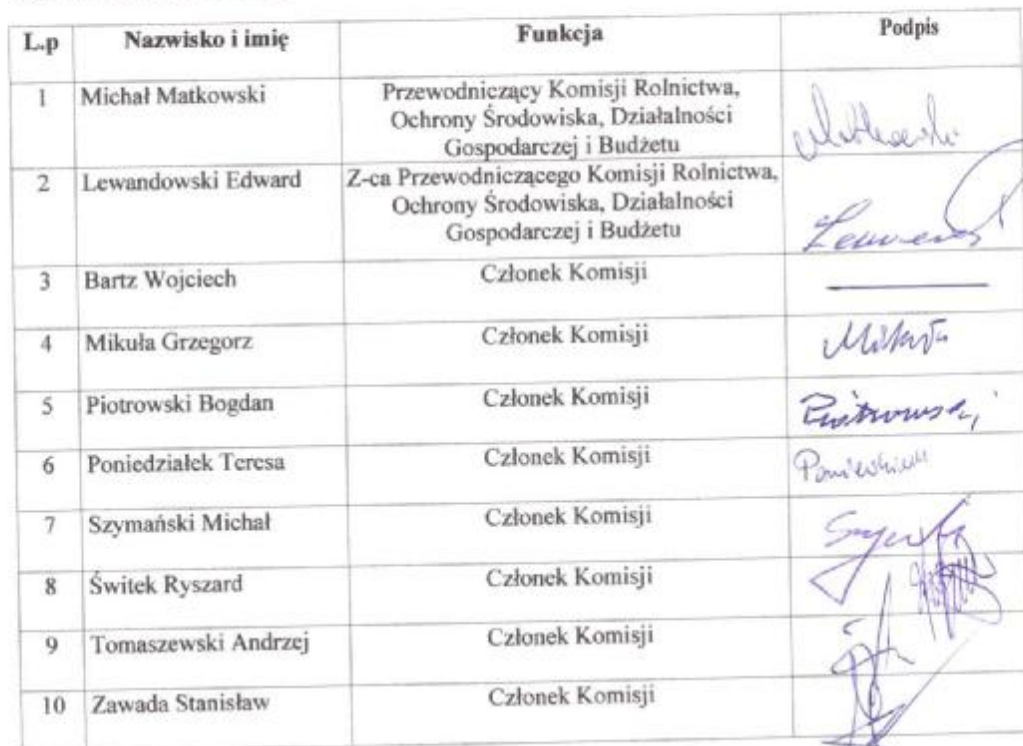 L.p Nazwisko i imię Funkcja Podpis
1 Michał Matkowski Przewodniczący Komisji Rolnictwa,
Ochrony Środowiska, Działalności
Gospodarczej i Budżetu
2 Lewandowski Edward Z-ca Przewodniczącego Komisji Rolnictwa,
Ochrony Środowiska, Działalności
Gospodarczej i Budżetu
3 Bartz Wojciech Członek Komisji
4 Mikuła Grzegorz Członek Komisji
5 Piotrowski Bogdan Członek Komisji Piotrowski
6 Poniedziałek Teresa Członek Komisji
7 Szymański Michał Członek Komisji
8 Świtek Ryszard Członek Komisji
9 Tomaszewski Andrzej Członek Komisji
10 Zawada Stanisław Członek Komisji